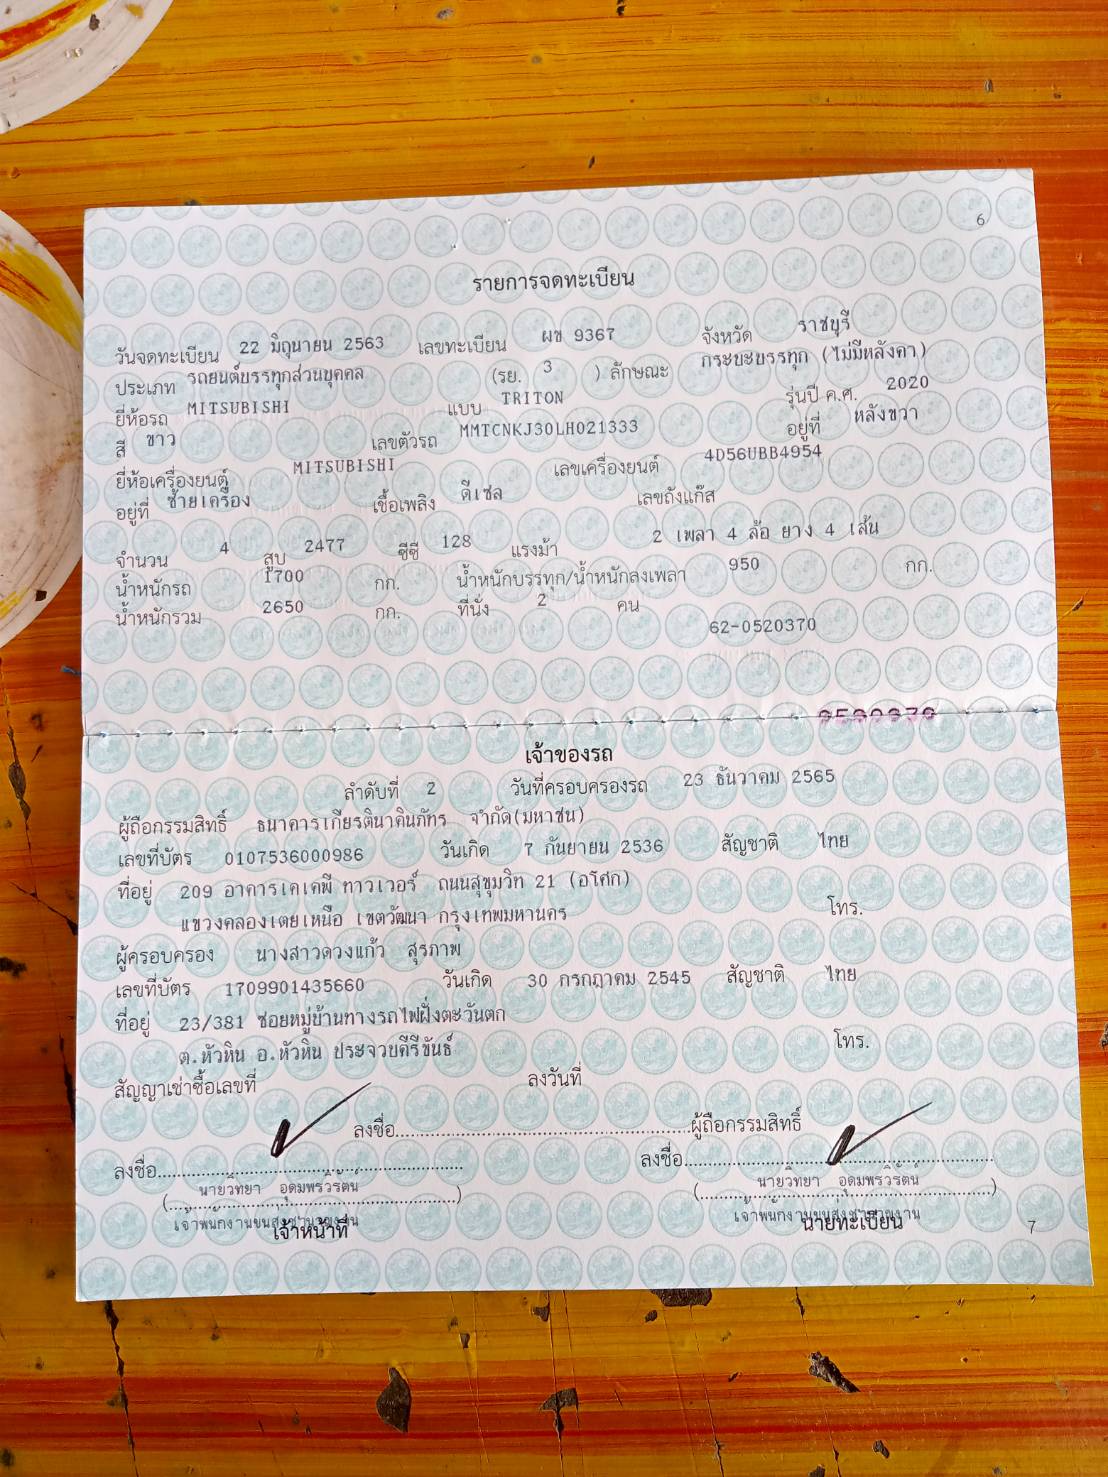 6
รายการจดทะเบียน
วันจดทะเบียน 22 มิถุนายน 2563 เลขทะเบียน ผข 9367 จังหวัด ราชบุรี
ประเภท รถยนต์บรรทุกส่วนบุคคล (รย. 3 ) ลักษณะ กระบะบรรทุก (ไม่มีหลังคา)
ยี่ห้อรถ MITSUBISHI แบบ TRITON รุ่นปี ค.ศ. 2020
สี ขาว เลขตัวรถ MMTCNKJ30LH021333 อยู่ที่ หลังขวา
ยี่ห้อเครื่องยนต์ MITSUBISHI เลขเครื่องยนต์ 4D56UBB4954
อยู่ที่ ซ้ายเครื่อง เชื้อเพลิง ดีเซล เลขถังแก๊ส
จำนวน 4 สูบ 2477 ซีซี 128 แรงม้า 2 เพลา 4 ล้อ ยาง 4 เส้น
น้ำหนักรถ 1700 กก. น้ำหนักบรรทุก/น้ำหนักลงเพลา 950 กก.
น้ำหนักรวม 2650 กก. ที่นั่ง 2 คน
62-0520370
เจ้าของรถ
ลำดับที่ 2 วันที่ครอบครองรถ 23 ธันวาคม 2565
ผู้ถือกรรมสิทธิ์ ธนาคารเกียรตินาคินภัทร จำกัด(มหาชน)
เลขที่บัตร 0107536000986 วันเกิด 7 กันยายน 2536 สัญชาติ ไทย
ที่อยู่ 209 อาคารเคเคพี ทาวเวอร์ ถนนสุขุมวิท 21 (อโศก)
แขวงคลองเตยเหนือ เขตวัฒนา กรุงเทพมหานคร โทร.
ผู้ครอบครอง นางสาวดวงแก้ว สุรภาพ
เลขที่บัตร 1709901435660 วันเกิด 30 กรกฎาคม 2545 สัญชาติ ไทย
ที่อยู่ 23/381 ซอยหมู่บ้านทางรถไฟฝั่งตะวันตก
ต.หัวหิน อ.หัวหิน ประจวบคีรีขันธ์ โทร.
สัญญาเช่าซื้อเลขที่ ลงวันที่
ลงชื่อ ผู้ถือกรรมสิทธิ์
ลงชื่อ ลงชื่อ
(นายวิทยา อุดมพรวิรัตน์) (นายวิทยา อุดมพรวิรัตน์)
เจ้าพนักงานขนส่งชำนาญงาน เจ้าพนักงานขนส่งชำนาญงาน
เจ้าหน้าที่ นายทะเบียน 7